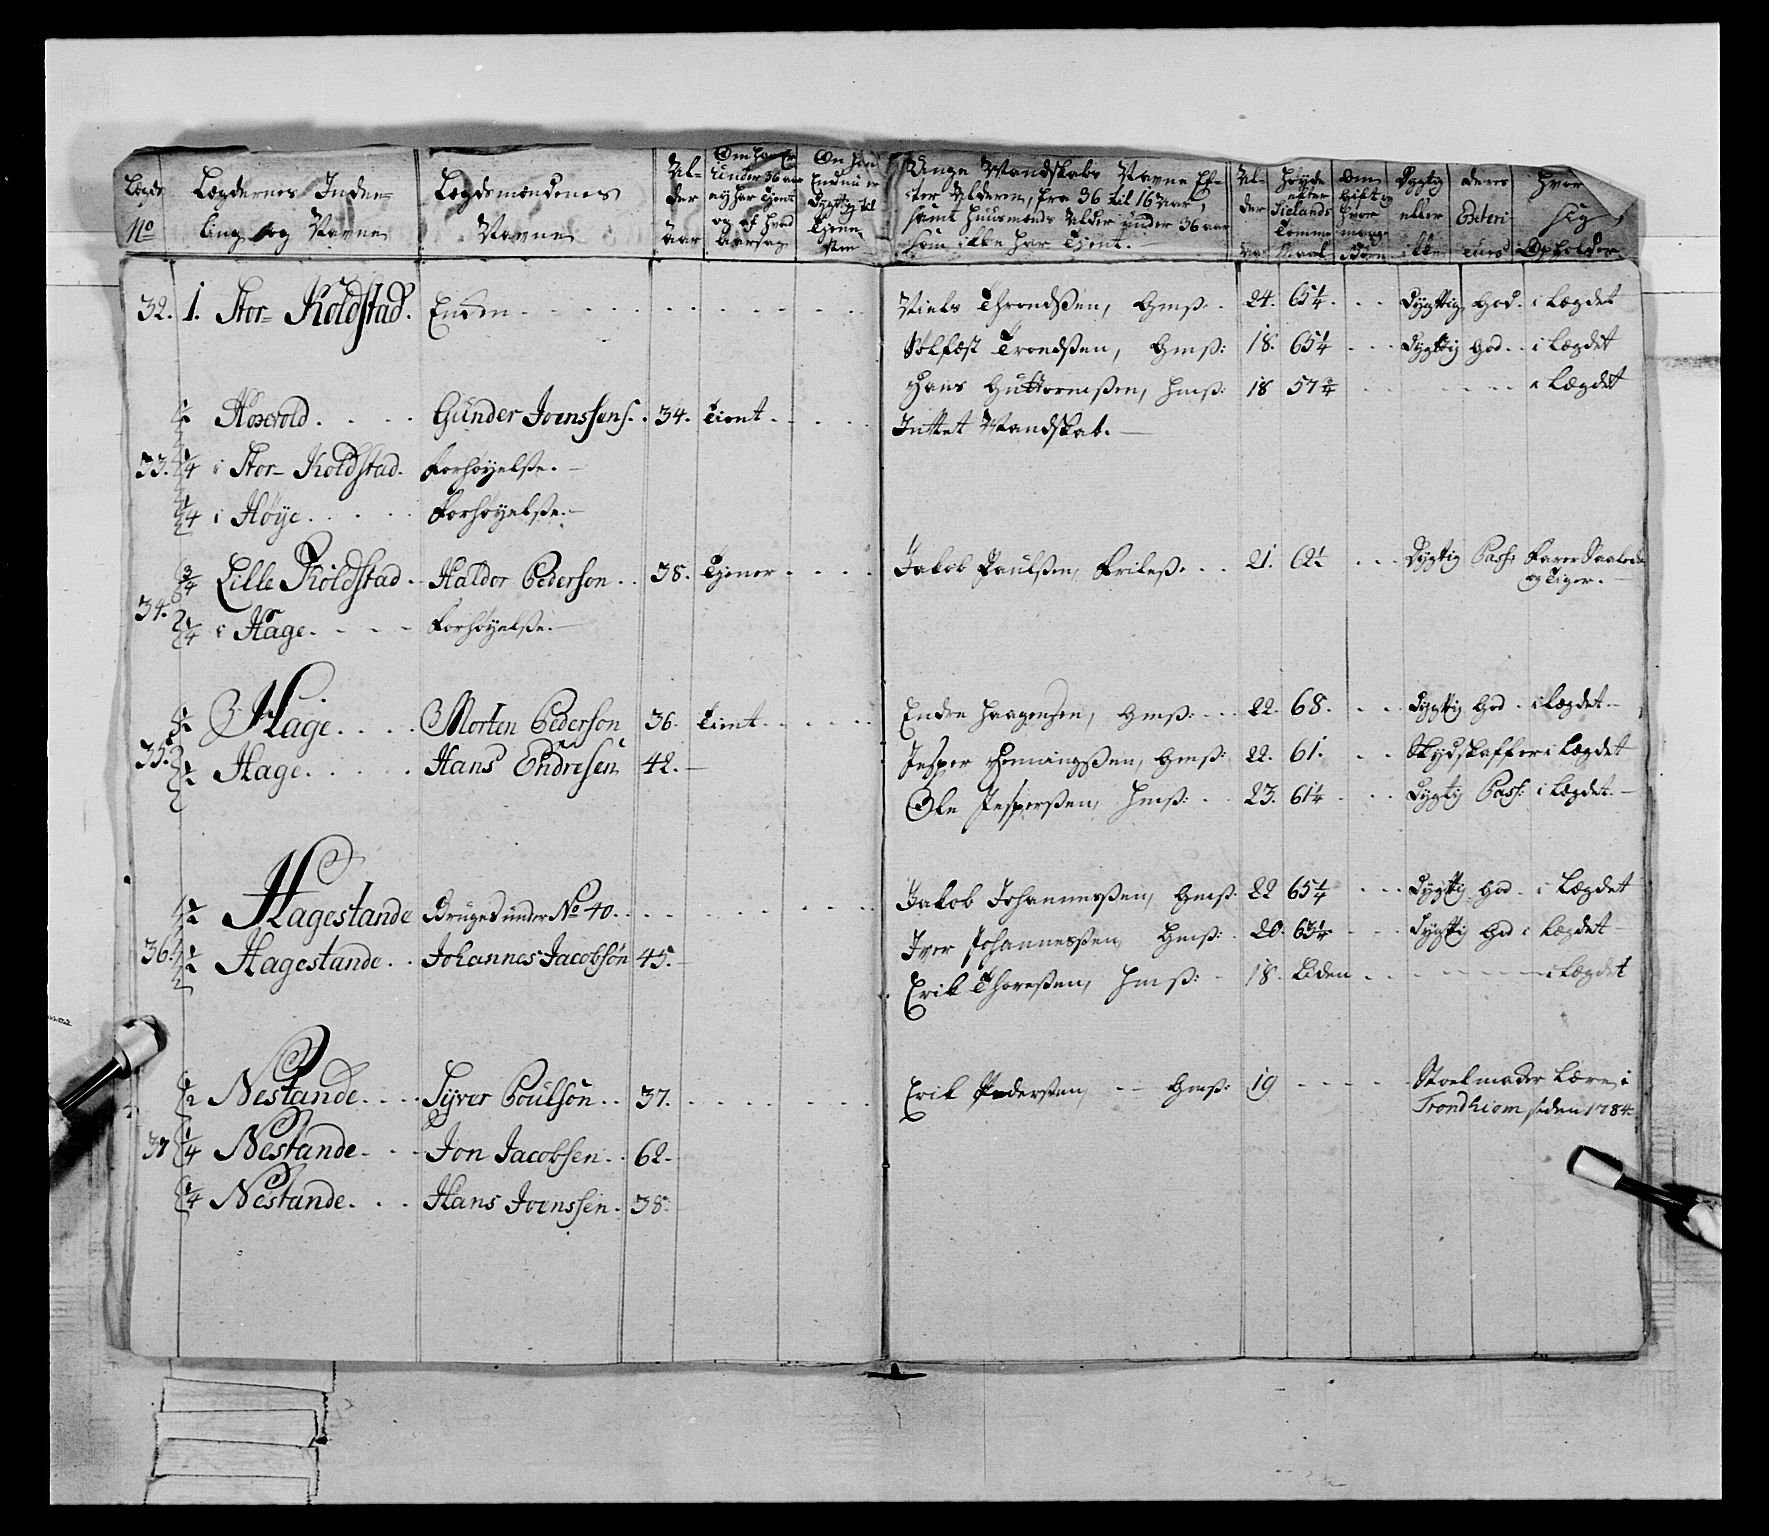 Lægds No
Lægdernes Inde-
ling og Navne
Lægdsmændenes
Navne
Al-
der
Aar
Om han er
under 36 aar
ey har tient
og af hvad
Aarsag
Om han
Endnu er
Dygttig til
Tienne
sten
Unge Mandskabs Navne Ef-
ter Alderen, fra 36 til 16 aar,
samt huusmænds Alder under 36 aar
som ikke har Tient.
Al-
der
Aar
Høyde
efter
Sielands
Tomme
Maal
Om
gift og
hvor
mange
Børn
Dygtig
eller
ikke
deres
Exteri-
eurs
hvor
sig
Opholder
32. 1. Stor-Koldstad. Enken Niels Throndsen, Gms: 24. 65¼. Dygttig God. i Lægdet
Trondsen, Gms: 18. 65¼ Dygttig God. i Lægdet
Hans Guttormsen, Hms: 18 57¾ i Lægdet
½ Gunder Joenssens. 34. Tient Inttet Mandskab.
33. ¼ i Stor-Koldstad. Forhøyelse.
¼ i Høÿe. Forhøyelse.
¾ Lille Koldstad. Haldor Pederson. 38. Tiener Jakob Paulsen, 21. 62. Dygtig Pass:
og Tiger.
34. ¼ i Hage. Forhøyelse.
½ Hage. Morten Pederson 36. Tient Endre Haagensen, Gms: 22. 68. Dygttig God i Lægdet
35. ½ Hage. Hans Endresen 42. Jesper Gms: 22. 61. Skydskaffer i Lægdet
Ole Jespersen, Hms: 23. 61¼ Dygtig Pass: i Lægdet.
½ Hagestande Bruges under No 40. Jakob Johannessen, Gms: 22 65¼ Dygttig God. i Lægdet
36. ½ Hagestande. Johannes Jacobsön 45. Iver Johannessen, Gms: 20. 63¼ Dygttig God i Lægdet
Erik Thoresen, Hms: 18. Liden i Lægdet
½ Nestande. Syver Poulsön. 37. Erik Pedersen, Gms: 19 Stoelmager Lære, i
Trondhiem siden 1784
37 ¼ Nestande. Jon Jacobsen. 62.
¼ Nestande. Hans Joenssen. 38.